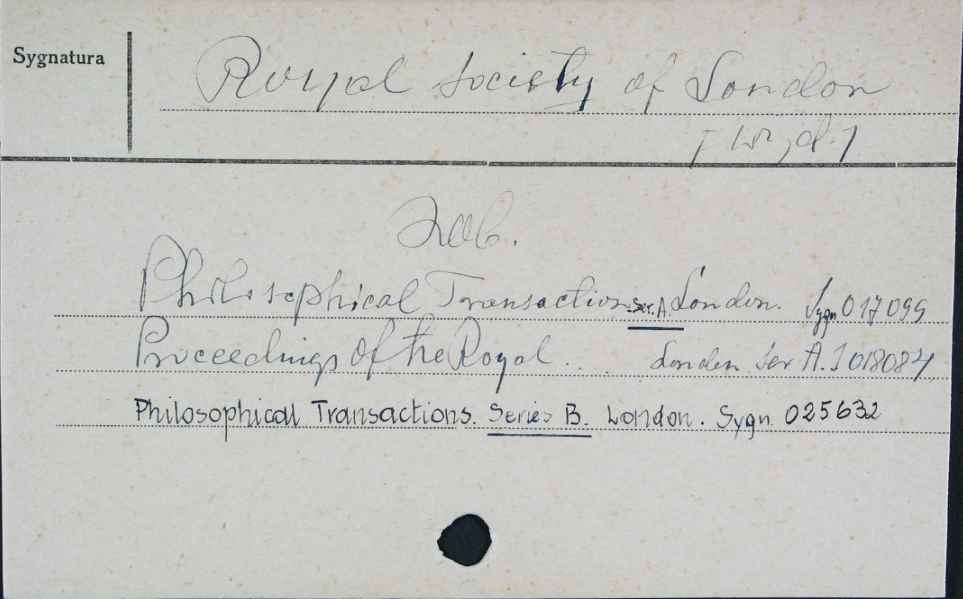 Sygnatura
Royal Society of London
[wyd.]
Zob.
Philosophical Transactions Ser. A. London. Sygn 017099
Proceedings of the Royal... London Ser A. S 018084
Philosophical Transactions. Series B. London. Sygn. 025632